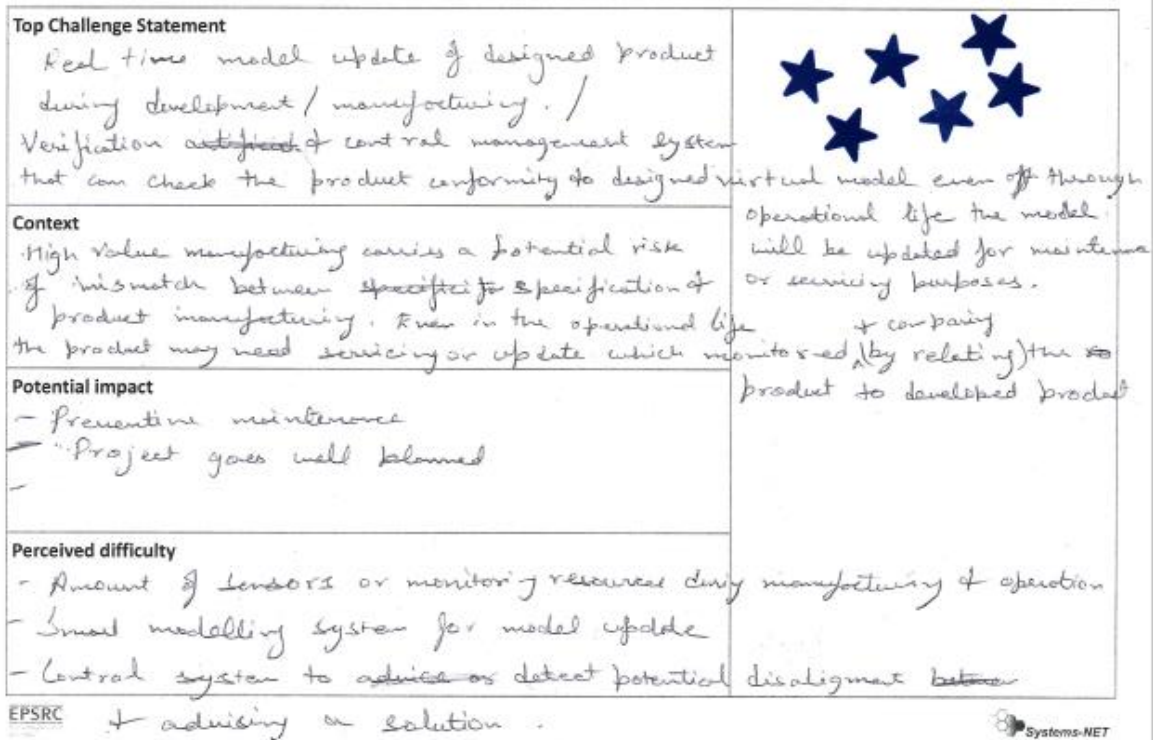 Top Challenge Statement
Real time model update of designed product
during development / manufacturing. /
Verification & control management system
that can check the product conformity to designed virtual model even through
operational life the model
will be updated for maintenance
or servicing purposes.
Context
High value manufacturing carries a potential risk
of mismatch between specification &
product manufacturing. Even in the operational life
the product may need servicing or update which monitored (by relating) the
+ comparing
product to developed product
Potential impact
- Preventive maintenance
- Project goes well planned
-
Perceived difficulty
- Amount of sensors or monitoring resources during manufacturing & operation
- Smart modelling system for model update
- Control system to detect potential disaligment
+ advising on solution.
EPSRC
Systems-NET